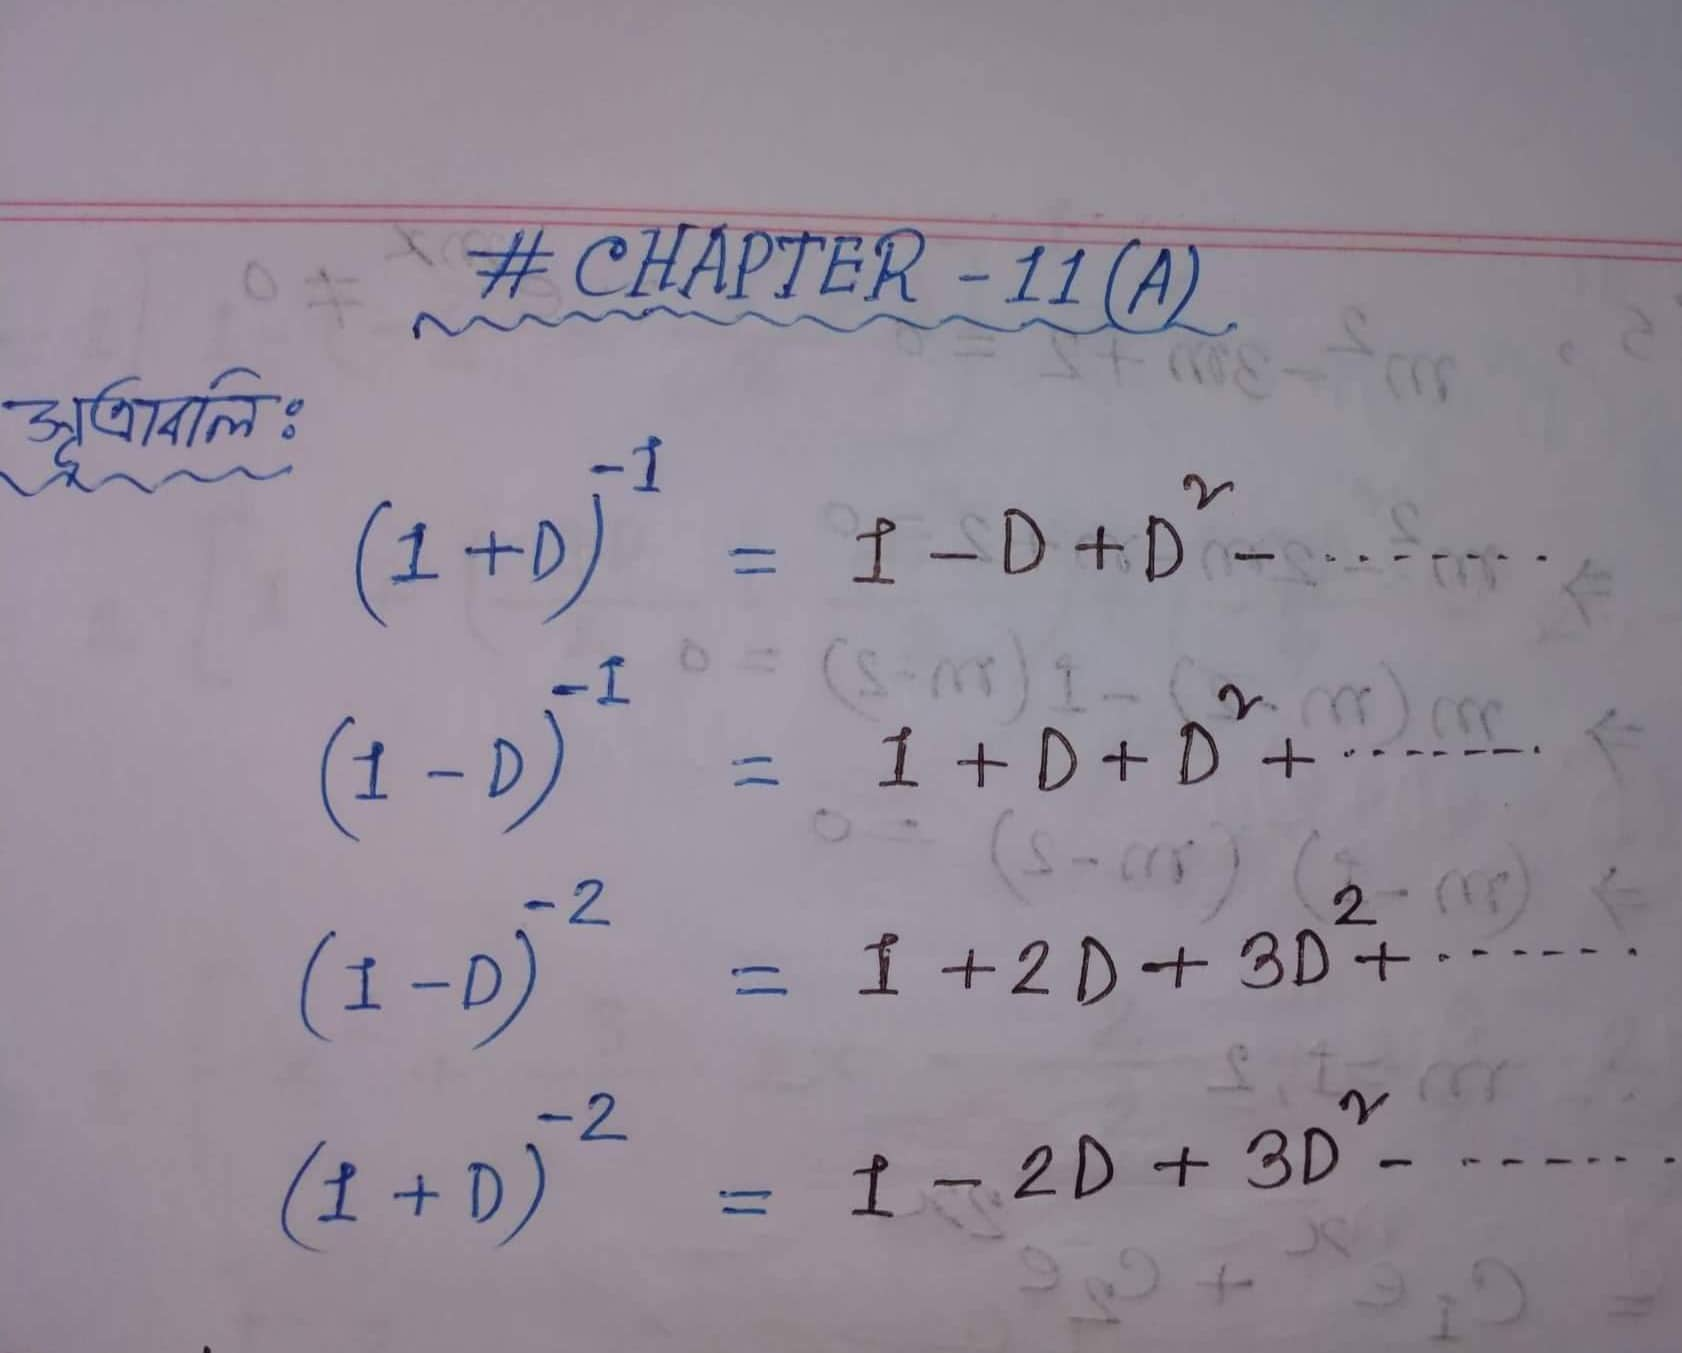 # CHAPTER - 11 (A)
সূত্রাবলি:
(1 + D)⁻¹ = 1 - D + D² - .......
(1 - D)⁻¹ = 1 + D + D² + .......
(1 - D)⁻² = 1 + 2D + 3D² + .......
(1 + D)⁻² = 1 - 2D + 3D² - .......